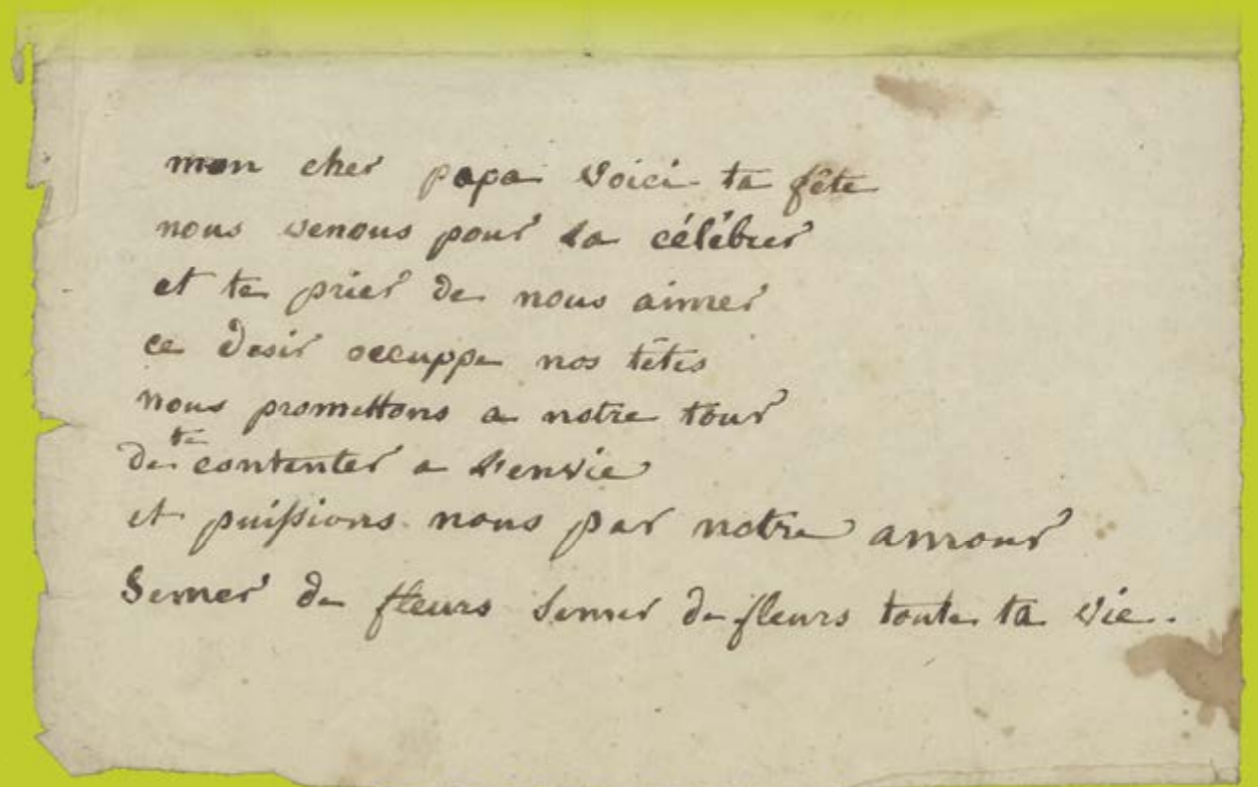 mon cher papa voici ta fête
nous venons pour la célébrer
et te prier de nous aimer
ce desir occuppe nos têtes
nous promettons a notre tour
de te contenter a l'envie
et puissions nous par notre amour
Semer de fleurs semer de fleurs toute ta vie.